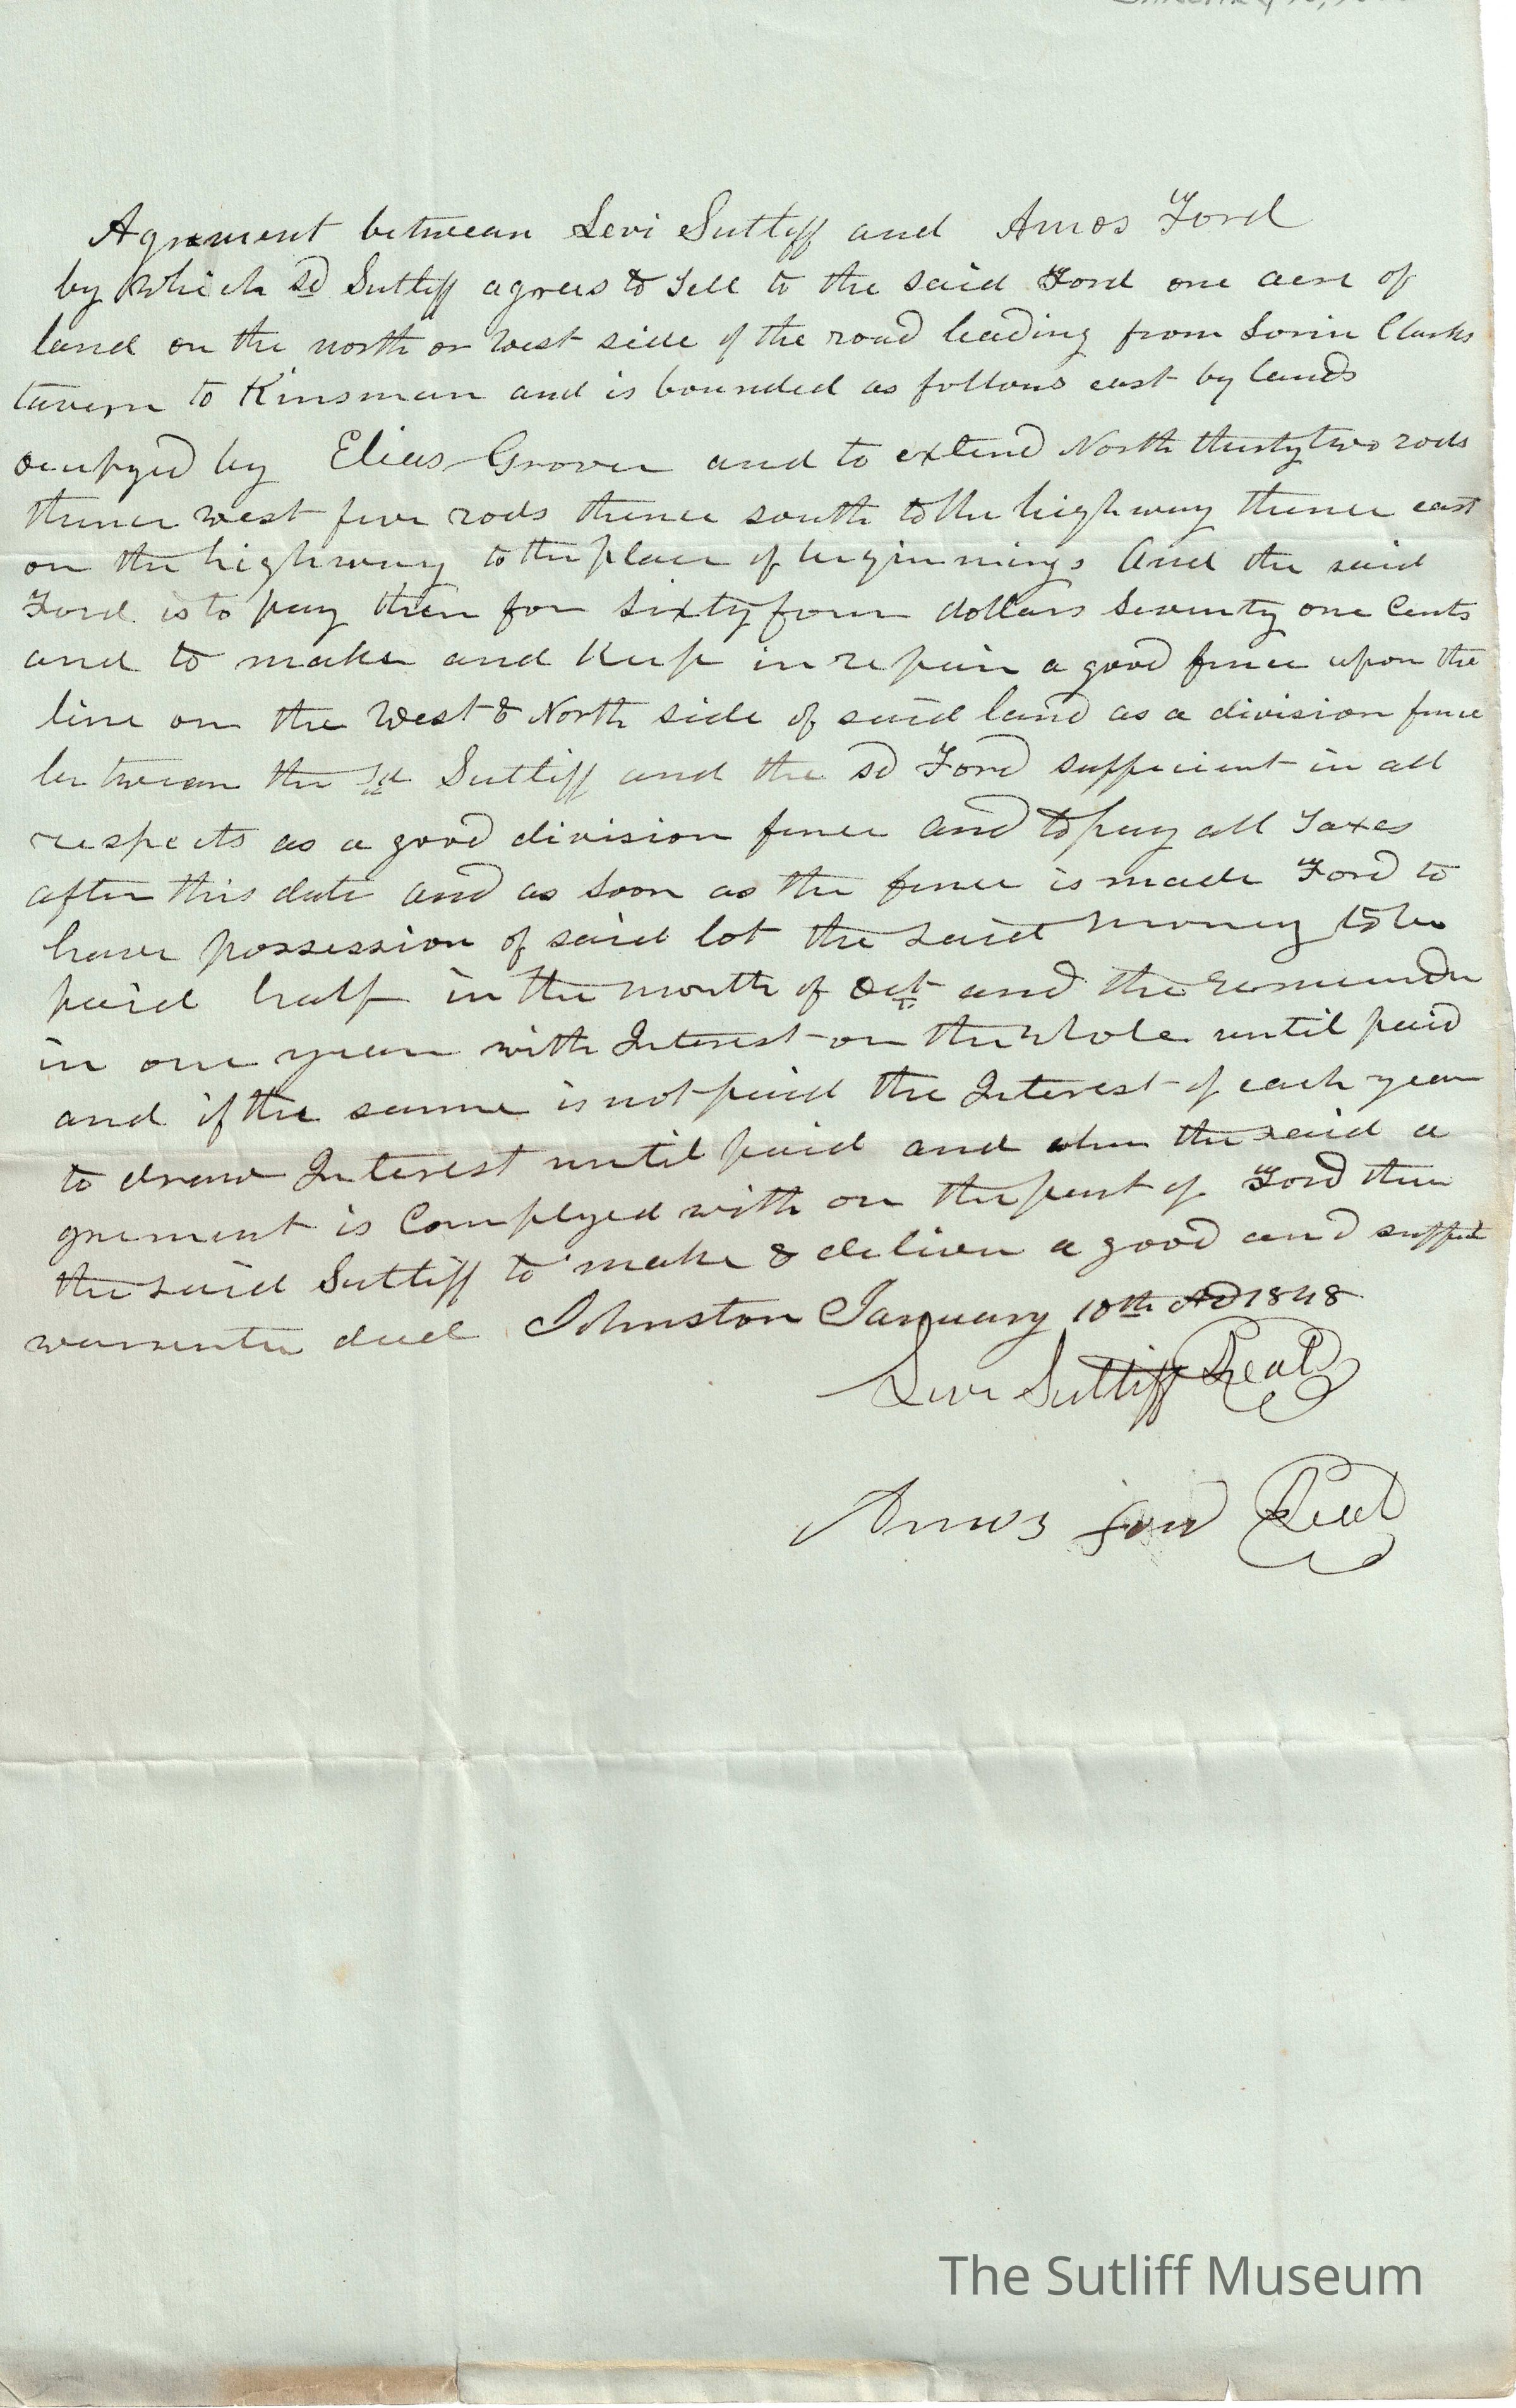 Agreement between Levi Sutliff and Amos Ford
by which sd Sutliff agrees to sell to the said Ford one acre of
land on the north or west side of the road leading from Lorin Clarks
tavern to Kinsman and is bounded as follows east by lands
ocupyed by Elias Grover and to extend North thirty two rods
thence west five rods thence south to the highway thence east
on the highway to the place of beginnings And the said
Ford is to pay then for sixty four dollars seventy one Cents
and to make and keep in repair a good fence upon the
line on the West & North side of said land as a division fence
between the sd Sutliff and the sd Ford sufficient in all
respects as a good division fence and to pay all Taxes
after this date and as soon as the fence is made Ford to
have possession of said lot the said money to be
paid half in the month of Oct and the remainder
in one year with Interest on the whole until paid
and if the same is not paid the Interest of each year
to draw Interest until paid and when the said a
greement is Complyed with on the part of Ford then
the said Sutliff to make & deliver a good and
warrentee deed Johnston January 10th AD 1848
Levi Sutliff Seal
Amos Ford Seal
The Sutliff Museum